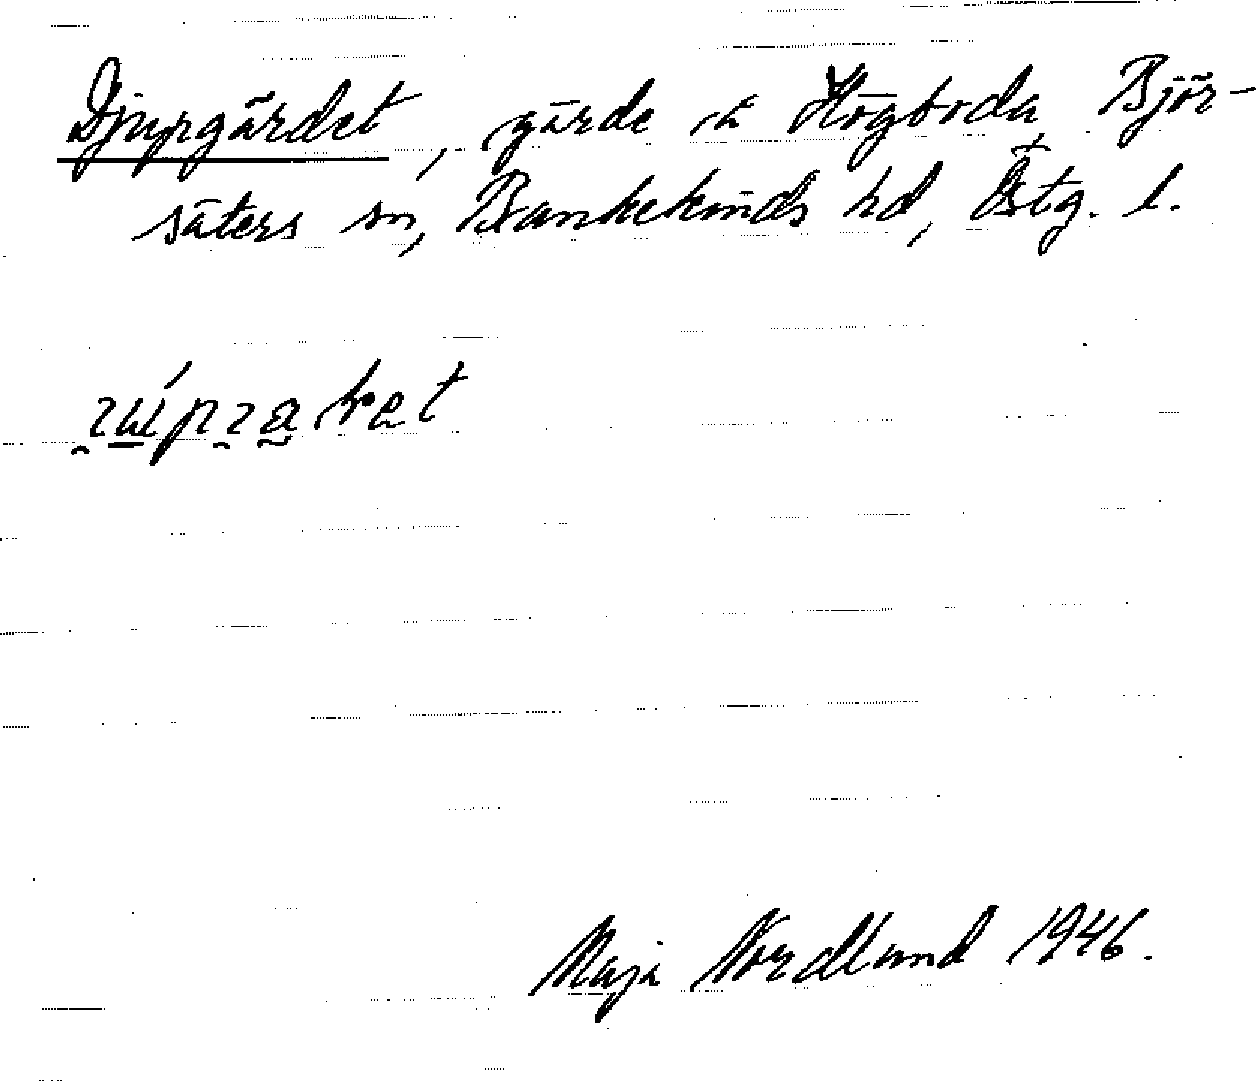 Djupgärdet, gärde i Högboda, Björ-
säters sn, Bankekinds hd, Östg. l.
Maja Nordlund 1946.